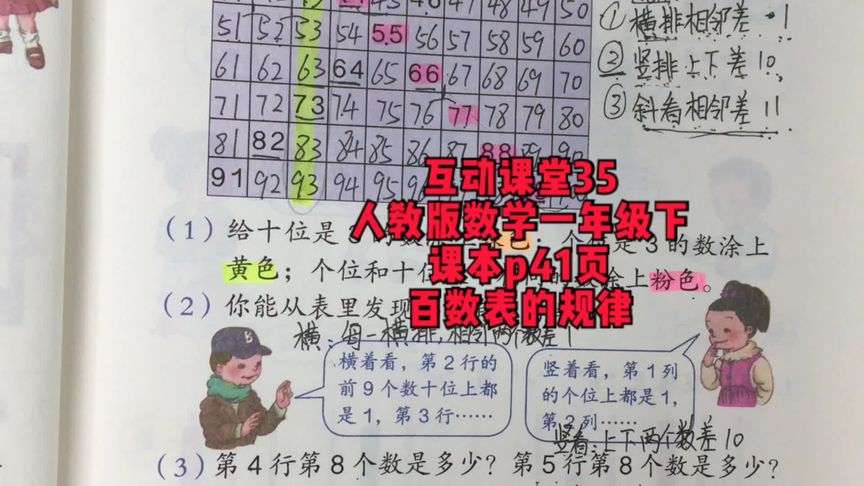 47 48 49 50
① 横排相邻差 1
51 52 53 54 55 56 57 58 59 60
② 竖排上下差 10
61 62 63 64 65 66 67 68 69 70
③ 斜看相邻差 11
71 72 73 74 75 76 77 78 79 80
81 82 83 84 85 86 87 88
91 92 93 94 95
互动课堂35
人教版数学一年级下
课本p41页
百数表的规律
(1) 给十位是 的数涂 色；个位是 3 的数涂上
黄色；个位和十位 涂上粉色。
(2) 你能从表里发现
横：每一横排，相邻两个数差1
横着看，第 2 行的
前 9 个数十位上都
是 1，第 3 行……
竖着看，第 1 列
的个位上都是 1，
第 2 列……
竖看：上下两个数差10
(3) 第 4 行第 8 个数是多少？第 5 行第 8 个数是多少？